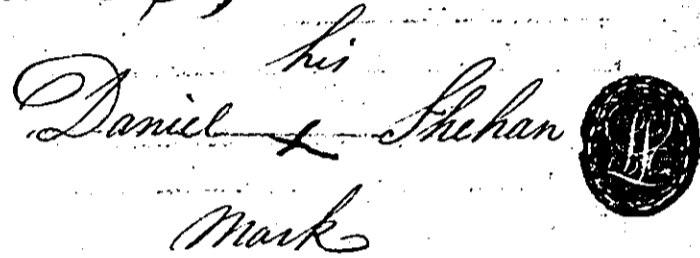 his
Daniel x Shehan
Mark